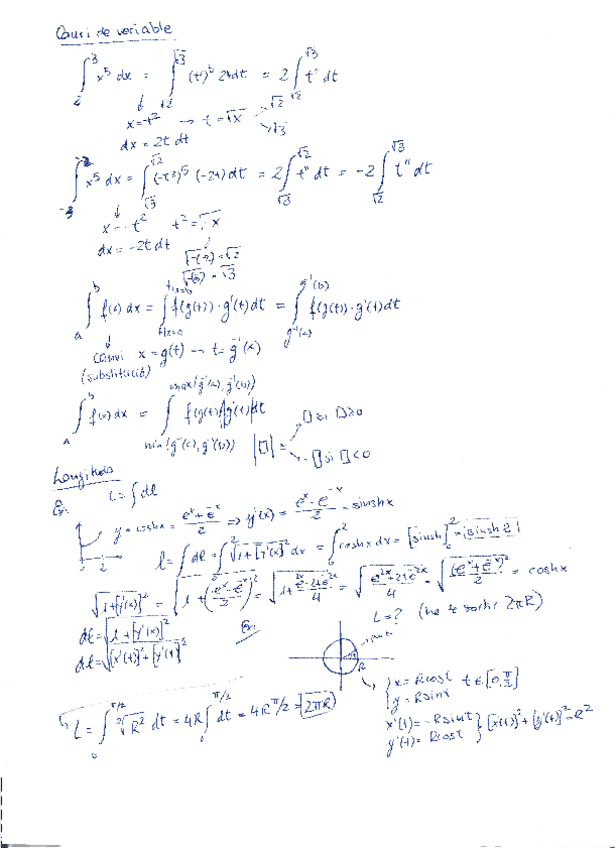 Canvi de variable
∫_2^3 x^5 dx = ∫_√2^√3 (t²)^5 2t dt = 2∫_√2^√3 t^11 dt
x = t² → t = √x → √2
√3
dx = 2t dt
∫_-3^-2 x^5 dx = ∫_√3^√2 (-t²)^5 (-2t) dt = 2∫_√3^√2 t^11 dt = -2∫_√2^√3 t^11 dt
x = -t² t² = √-x
dx = -2t dt
√-(-2) = √2
√-(-3) = √3
∫_a^b f(x) dx = ∫_{t|x=a}^{t|x=b} f(g(t))·g'(t) dt = ∫_{g⁻¹(a)}^{g⁻¹(b)} f(g(t))·g'(t) dt
canvi x = g(t) → t = g⁻¹(x)
(substitució)
∫_a^b f(x) dx = ∫_{min(g⁻¹(a), g⁻¹(b))}^{max(g⁻¹(a), g⁻¹(b))} f(g(t)) |g'(t)| dt
|□| = □ si □ ≥ 0
-□ si □ < 0
L = ∫dl
Ex.
y = cosh x = (e^x + e^-x)/2 ⇒ y'(x) = (e^x - e^-x)/2 = sinh x
l = ∫dl = ∫_0^2 √(1 + [y'(x)]²) dx = ∫_0^2 cosh x dx = [sinh]_0^2 = sinh 2
√(1 + [y'(x)]²) = √(1 + ((e^x - e^-x)/2)²) = √(1 + (e^2x - 2 + e^-2x)/4) = √((e^2x + 2 + e^-2x)/4) = √((e^x + e^-x)/2)² = cosh x
dl = √(1 + [y'(x)]²)
dl = √([x'(t)]² + [y'(t)]²)
Ex.
L = ? (ha de sortir 2πR)
R
x = R cos t t ∈ [0, π/2]
y = R sin t
x'(t) = -R sin t
y'(t) = R cos t } [x'(t)]² + [y'(t)]² = R²
L = ∫_0^{π/2} √R² dt = 4R ∫_0^{π/2} dt = 4R π/2 = 2πR